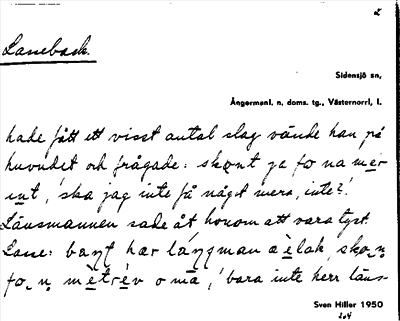 2
Lasseback.
Sidensjö sn,
Ångermanl. n. doms. tg., Västernorrl. l.
hade fått ett visst antal slag vände han på
huvudet och frågade: skont ja fo na mer
int, 'ska jag inte få något mera, inte?'.
Länsmannen sade åt honom att vara tyst.
Lasse: bant hær länsman a
'bara inte herr läns-
Sven Hiller 1950